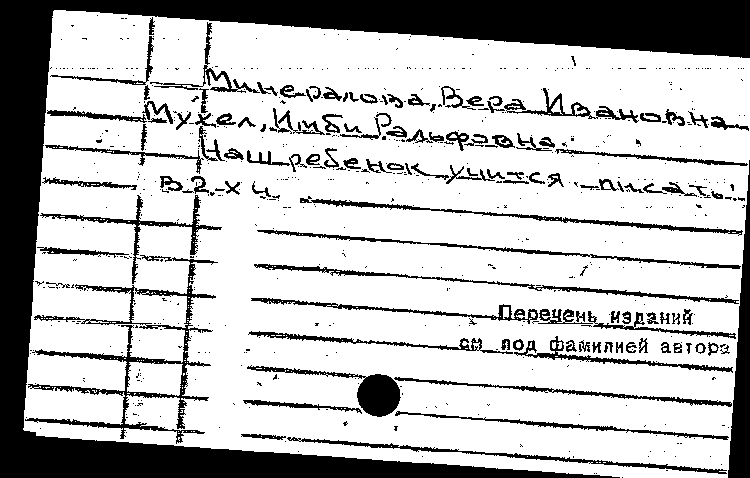 Минералова, Вера Ивановна
Мухел, Имби Ральфовна.
Наш ребенок учится писать:
В 2-х ч
Перечень изданий
см под фамилией автора